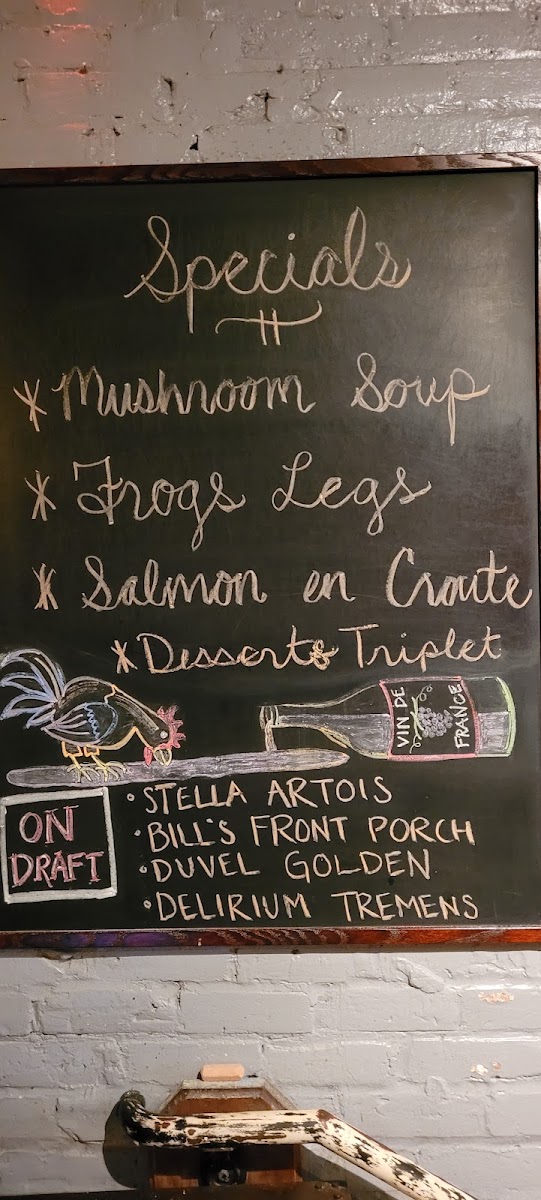 Specials
* Mushroom Soup
* Frogs Legs
* Salmon en Croute
* Desserts Triplet
VIN DE
FRANCE
ON
DRAFT
• STELLA ARTOIS
• BILL'S FRONT PORCH
• DUVEL GOLDEN
• DELIRIUM TREMENS